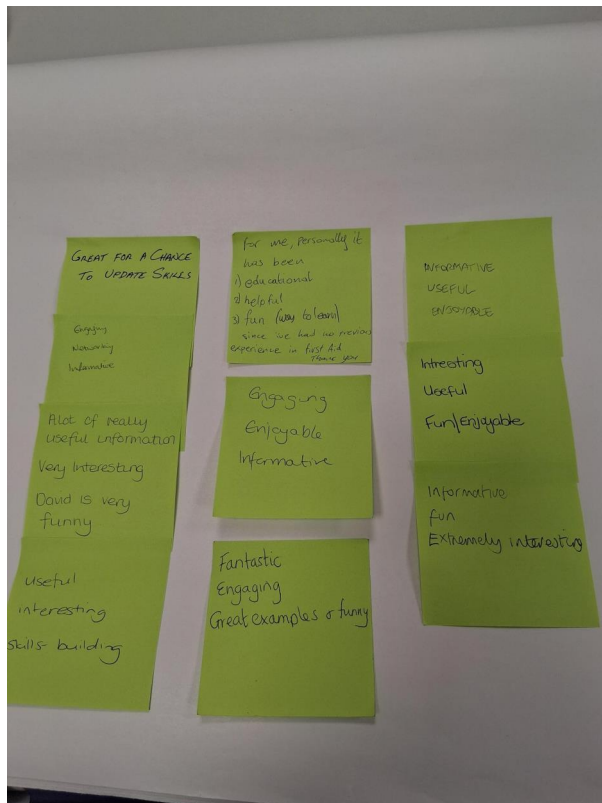 GREAT FOR A CHANCE
TO UPDATE SKILLS
Engaging
Networking
Informative
Alot of really
useful information
Very Interesting
David is very
funny
useful
interesting
skills- building
for me, personally it
has been
1) educational
2) helpful
3) fun (way to learn)
since we had no previous
experience in first Aid
Thank you
Engaging
Enjoyable
Informative
Fantastic
Engaging
Great examples & funny
INFORMATIVE
USEFUL
ENJOYABLE
Intresting
Useful
Fun/Enjoyable
Informative
fun
Extremely interesting